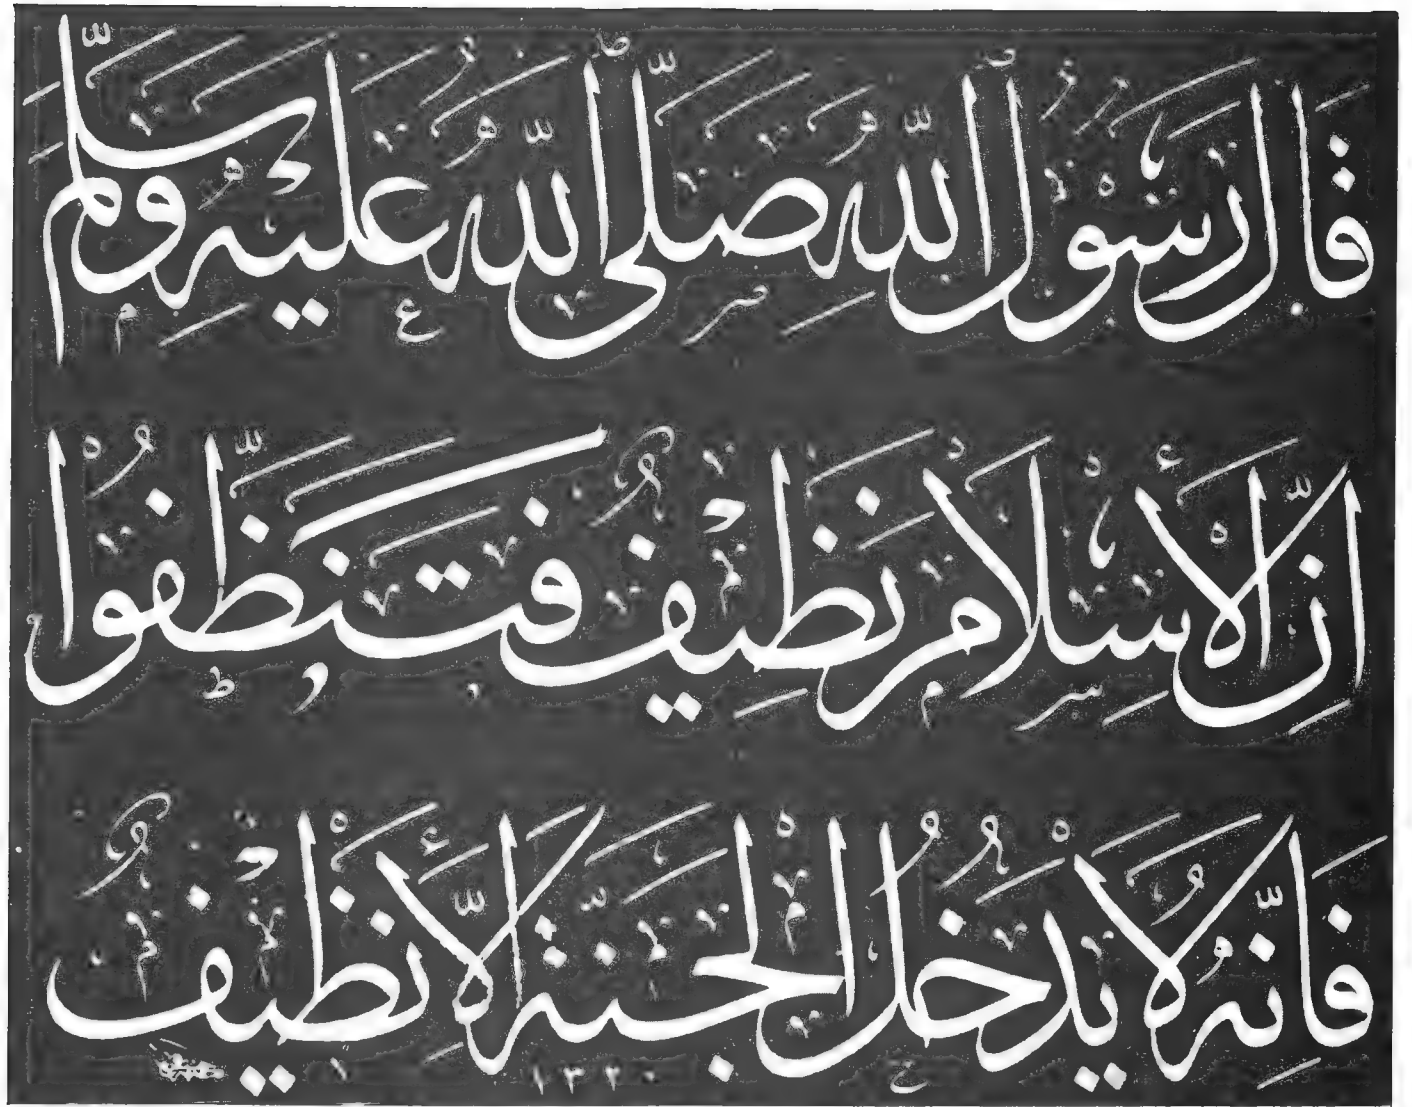 قَالَ رَسُولُ اللّٰهِ صَلَّى اللّٰهُ عَلَيْهِ وَسَلَّمَ
اِنَّ الْأِسْلَامَ نَظِيفٌ فَتَنَظَّفُوا
فَاِنَّهُ لَا يَدْخُلُ الْجَنَّةَ اِلَّا نَظِيفٌ